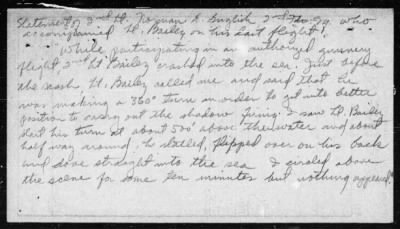 Statement of 2nd Lt. Norman R. English 2nd Ftr. Sq. who
accompanied Lt. Bailey on his last flight!
While participating in an authorized gunnery
flight 2nd Lt Bailey crashed into the sea. Just before
the crash, Lt. Bailey called me and said that he
was making a 360° turn in order to get into better
position to carry out the shadow firing. I saw Lt. Bailey
start his turn at about 500' above the water and about
half way around, he stalled, flipped over on his back
and dove straight into the sea I circled above
the scene for some ten minutes but nothing appeared."